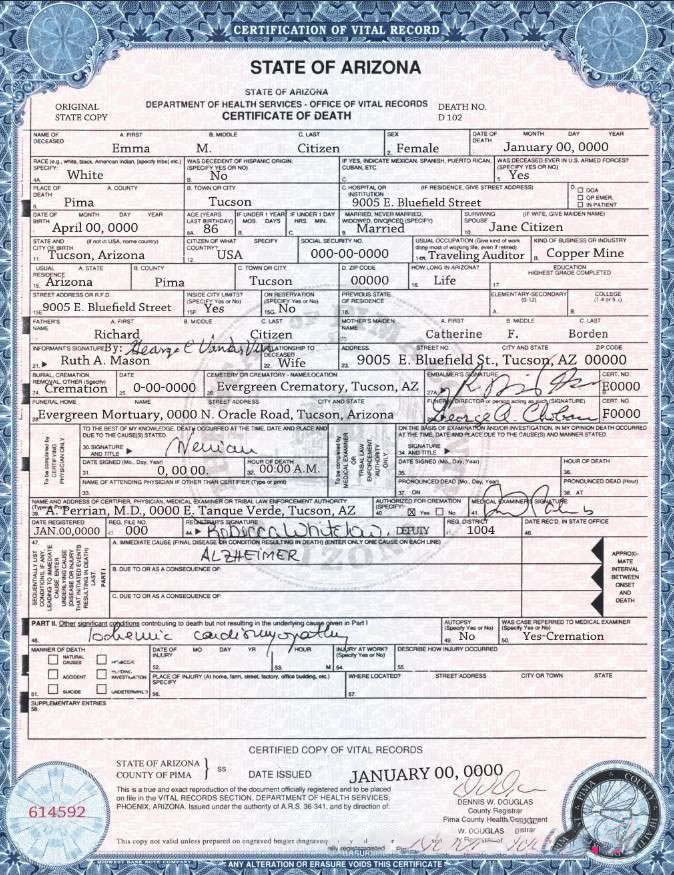 CERTIFICATION OF VITAL RECORD
STATE OF ARIZONA
STATE OF ARIZONA
ORIGINAL STATE COPY
DEPARTMENT OF HEALTH SERVICES - OFFICE OF VITAL RECORDS
CERTIFICATE OF DEATH
DEATH NO.
D 102
NAME OF DECEASED A. FIRST B. MIDDLE C. LAST SEX DATE OF DEATH MONTH DAY YEAR
1. Emma M. Citizen 2. Female 3. January 00, 0000
RACE (e.g., white, black, American Indian, (specify tribe) etc.) SPECIFY: WAS DECEDENT OF HISPANIC ORIGIN: (SPECIFY YES OR NO) IF YES, INDICATE MEXICAN, SPANISH, PUERTO RICAN, CUBAN, ETC. WAS DECEASED EVER IN U.S. ARMED FORCES? (SPECIFY YES OR NO)
4A. White B. No C. 5. Yes
PLACE OF DEATH A. COUNTY B. TOWN OR CITY C. HOSPITAL OR INSTITUTION (IF RESIDENCE, GIVE STREET ADDRESS) D DOA OP EMER. IN PATIENT
6. Pima Tucson 9005 E. Bluefield Street
DATE OF BIRTH MONTH DAY YEAR AGE (YEARS LAST BIRTHDAY) IF UNDER 1 YEAR MOS. DAYS IF UNDER 1 DAY HRS. MIN. MARRIED, NEVER MARRIED, WIDOWED, DIVORCED (SPECIFY) SURVIVING SPOUSE (IF WIFE, GIVE MAIDEN NAME)
April 00, 0000 86 Married Jane Citizen
STATE AND CITY OF BIRTH (If not in USA, name country) CITIZEN OF WHAT COUNTRY? SPECIFY SOCIAL SECURITY NO. USUAL OCCUPATION (Give kind of work done most of working life, even if retired) KIND OF BUSINESS OR INDUSTRY
11. Tucson, Arizona 12. USA 000-00-0000 Traveling Auditor B. Copper Mine
USUAL RESIDENCE A. STATE B. COUNTY C. TOWN OR CITY D. ZIP CODE HOW LONG IN ARIZONA? EDUCATION HIGHEST GRADE COMPLETED
15. Arizona Pima Tucson 00000 16. Life 17.
STREET ADDRESS OR R.F.D. INSIDE CITY LIMITS? (SPECIFY Yes or No) ON RESERVATION (SPECIFY Yes or No) PREVIOUS STATE OF RESIDENCE ELEMENTARY-SECONDARY COLLEGE
15E. 9005 E. Bluefield Street 15F. Yes 15G. No
FATHER'S NAME A. FIRST B. MIDDLE C. LAST MOTHER'S MAIDEN NAME A. FIRST B. MIDDLE C. LAST
Richard Citizen Catherine F. Borden
INFORMANT'S SIGNATURE RELATIONSHIP TO DECEASED ADDRESS STREET NO. CITY AND STATE ZIP CODE
By:
21. Ruth A. Mason 22. Wife 23. 9005 E. Bluefield St., Tucson, AZ 00000
BURIAL, CREMATION, REMOVAL OTHER (Specify) DATE CEMETERY OR CREMATORY - NAME/LOCATION EMBALMER'S SIGNATURE CERT. NO
24. Cremation 25. 0-00-0000 26. Evergreen Crematory, Tucson, AZ E0000
FUNERAL HOME NAME STREET ADDRESS CITY AND STATE FUNERAL DIRECTOR or person acting as such (SIGNATURE) CERT. NO.
Evergreen Mortuary, 0000 N. Oracle Road, Tucson, Arizona F0000
To be completed by CERTIFYING PHYSICIAN ONLY
TO THE BEST OF MY KNOWLEDGE, DEATH OCCURRED AT THE TIME, DATE AND PLACE AND DUE TO THE CAUSE(S) STATED.
30. SIGNATURE AND TITLE
DATE SIGNED (Mo., Day, Year) HOUR OF DEATH
31. 0, 00 00. 32. 00:00 A.M.
NAME OF ATTENDING PHYSICIAN IF OTHER THAN CERTIFIER (Type or print)
33.
To be completed by MEDICAL EXAMINER OR TRIBAL LAW ENFORCEMENT AUTHORITY ONLY
ON THE BASIS OF EXAMINATION AND/OR INVESTIGATION, IN MY OPINION DEATH OCCURRED AT THE TIME, DATE AND PLACE DUE TO THE CAUSE(S) AND MANNER STATED
SIGNATURE
34. AND TITLE
DATE SIGNED (Mo., Day, Year) HOUR OF DEATH
35. 36.
PRONOUNCED DEAD (Mo., Day, Year) PRONOUNCED DEAD (Hour)
37. ON 38. AT
NAME AND ADDRESS OF CERTIFIER, PHYSICIAN, MEDICAL EXAMINER OR TRIBAL LAW ENFORCEMENT AUTHORITY AUTHORIZED FOR CREMATION (SPECIFY) MEDICAL EXAMINER'S SIGNATURE
39. A. Perrian, M.D., 0000 E. Tanque Verde, Tucson, AZ 40. Yes No 41.
DATE REGISTERED REG. FILE NO. REGISTRAR'S SIGNATURE REG. DISTRICT DATE REC'D. IN STATE OFFICE
JAN.00,0000 000 DEPUTY 1004 46.
47. A. IMMEDIATE CAUSE (FINAL DISEASE OR CONDITION RESULTING IN DEATH) (ENTER ONLY ONE CAUSE ON EACH LINE)
ALZHEIMER
SEQUENTIALLY LIST CONDITIONS, IF ANY, LEADING TO IMMEDIATE CAUSE. ENTER UNDERLYING CAUSE (DISEASE OR INJURY THAT INITIATED EVENTS RESULTING IN DEATH) LAST.
PART I
B. DUE TO OR AS A CONSEQUENCE OF:
C. DUE TO OR AS A CONSEQUENCE OF:
APPROXIMATE INTERVAL BETWEEN ONSET AND DEATH
PART II. Other significant conditions contributing to death but not resulting in the underlying cause given in Part I AUTOPSY (Specify Yes or No) WAS CASE REFERRED TO MEDICAL EXAMINER (Specify Yes or No)
48. Ischemic cardiomyopathy 49. No 50. Yes-Cremation
MANNER OF DEATH DATE OF INJURY MO DAY YR HOUR INJURY AT WORK? (Specify Yes or No) DESCRIBE HOW INJURY OCCURRED
NATURAL CAUSES HOMICIDE 52. 53. M 54. 55.
ACCIDENT PENDING INVESTIGATION PLACE OF INJURY (At home, farm, street, factory, office building, etc.) SPECIFY WHERE LOCATED? STREET ADDRESS CITY OR TOWN STATE
51. SUICIDE UNDETERMINED 56. 57.
SUPPLEMENTARY ENTRIES
58.
CERTIFIED COPY OF VITAL RECORDS
STATE OF ARIZONA
COUNTY OF PIMA } SS DATE ISSUED JANUARY 00, 0000
This is a true and exact reproduction of the document officially registered and to be placed
on file in the VITAL RECORDS SECTION, DEPARTMENT OF HEALTH SERVICES,
PHOENIX, ARIZONA. Issued under the authority of A.R.S. 36-341, and by direction of:
DENNIS W. DOUGLAS
County Registrar
Pima County Health Department
W. DOUGLAS
614592
This copy not valid unless prepared on engraved border
PIMA COUNTY HEALTH
ANY ALTERATION OR ERASURE VOIDS THIS CERTIFICATE